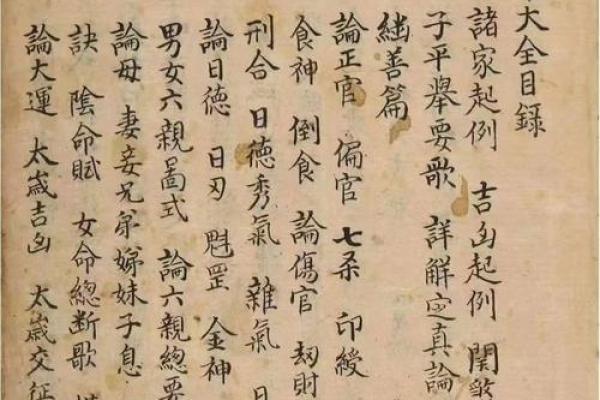 大全目録
諸家起例 吉凶起例 関煞
子平舉要歌 詳解定真論
繼善篇
論正官 偏官 七杀 印綬
食神 倒食 論傷官 刼財
刑合 日德秀氣 雜氣 日
論日德 日刃 魁罡 金神
男女六親啚式 論六親總要
論母 妻妾兄弟娣妹子息
訣 陰命賦 女命總断歌
論大運 太嵗吉凶 太嵗交征